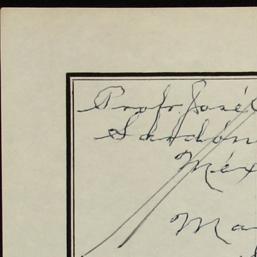 Profr. José
Sandón
Méx
Ma